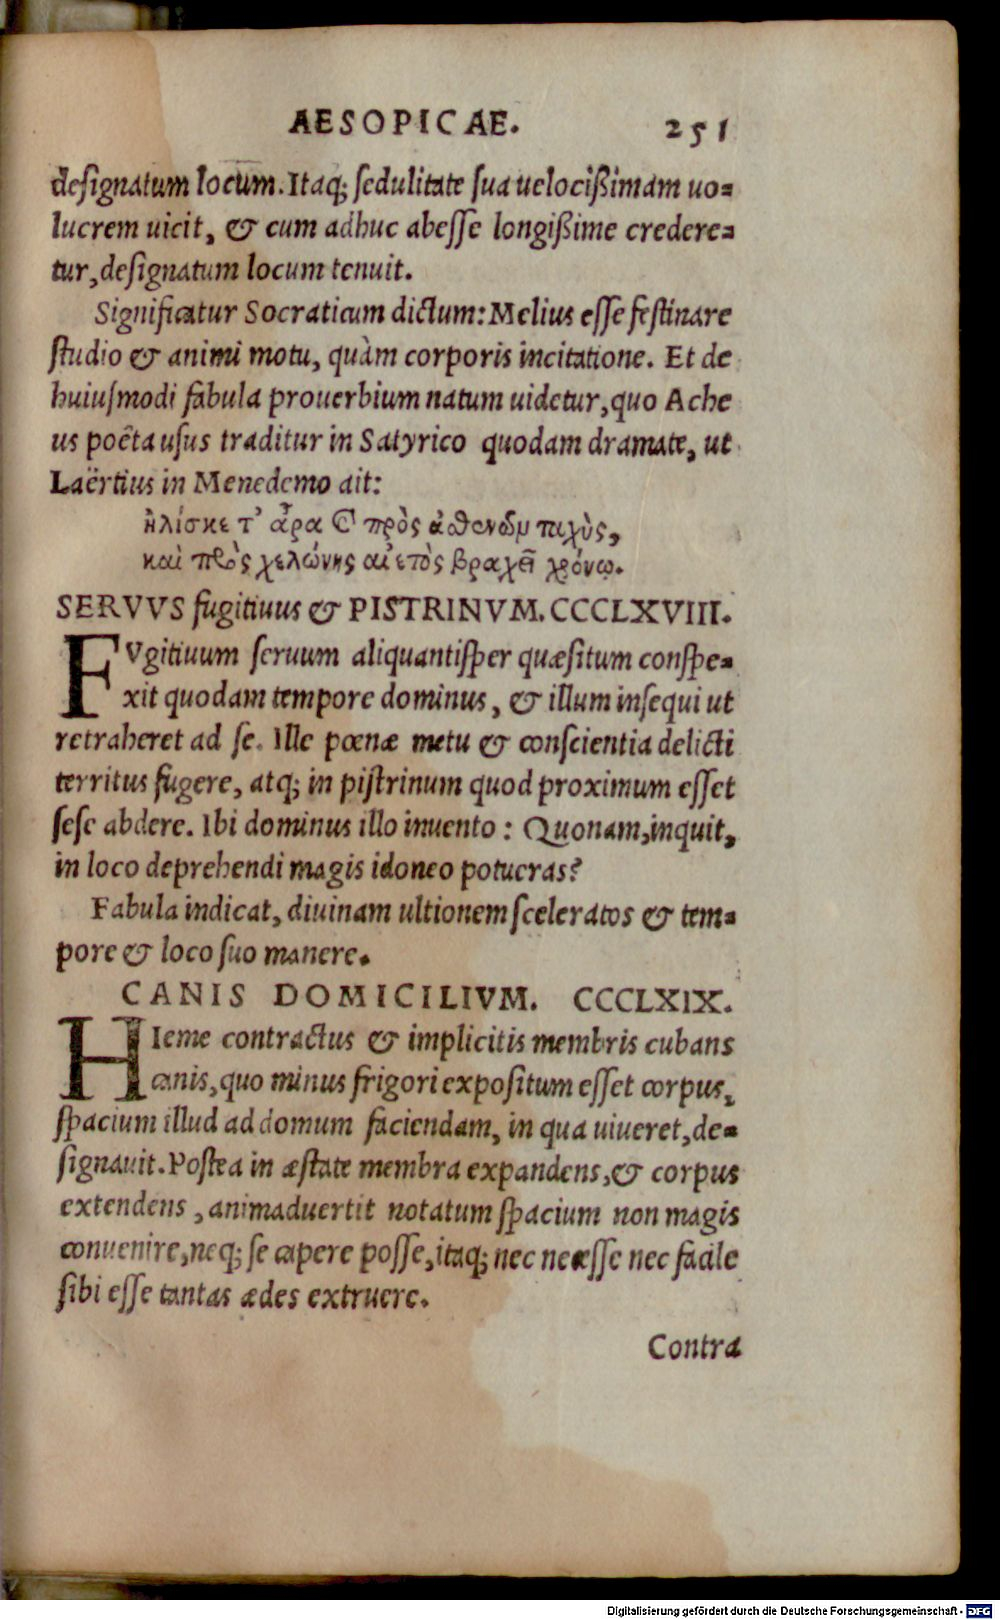 AESOPICAE. 251
designatum locum. Itaq; sedulitate sua uelocißimam uo-
lucrem uicit, & cum adhuc abesse longißime credere-
tur, designatum locum tenuit.
Significatur Socraticum dictum: Melius esse festinare
studio & animi motu, quàm corporis incitatione. Et de
huiusmodi fabula prouerbium natum uidetur, quo Ache
us poëta usus traditur in Satyrico quodam dramate, ut
Laërtius in Menedemo ait:
ἡλίσκετ' ἆρα καὶ πρὸς ἀσθενῶν ταχὺς,
καὶ πρὸς χελώνης αἰετὸς βραχεῖ χρόνῳ.
SERVVS fugitiuus & PISTRINVM. CCCLXVIII.
FVgitiuum seruum aliquantisper quæsitum conspe-
xit quodam tempore dominus, & illum insequi ut
retraheret ad se. Ille pœnæ metu & conscientia delicti
territus fugere, atq; in pistrinum quod proximum esset
sese abdere. Ibi dominus illo inuento: Quonam, inquit,
in loco deprehendi magis idoneo potueras?
Fabula indicat, diuinam ultionem sceleratos & tem-
pore & loco suo manere.
CANIS DOMICILIVM. CCCLXIX.
HIeme contractus & implicitis membris cubans
canis, quo minus frigori expositum esset corpus,
spacium illud ad domum faciendam, in qua uiueret, de-
signauit. Postea in æstate membra expandens, & corpus
extendens, animaduertit notatum spacium non magis
conuenire, neq; se capere posse, itaq; nec necesse nec facile
sibi esse tantas ædes extruere.
Contra
Digitalisierung gefördert durch die Deutsche Forschungsgemeinschaft - DFG